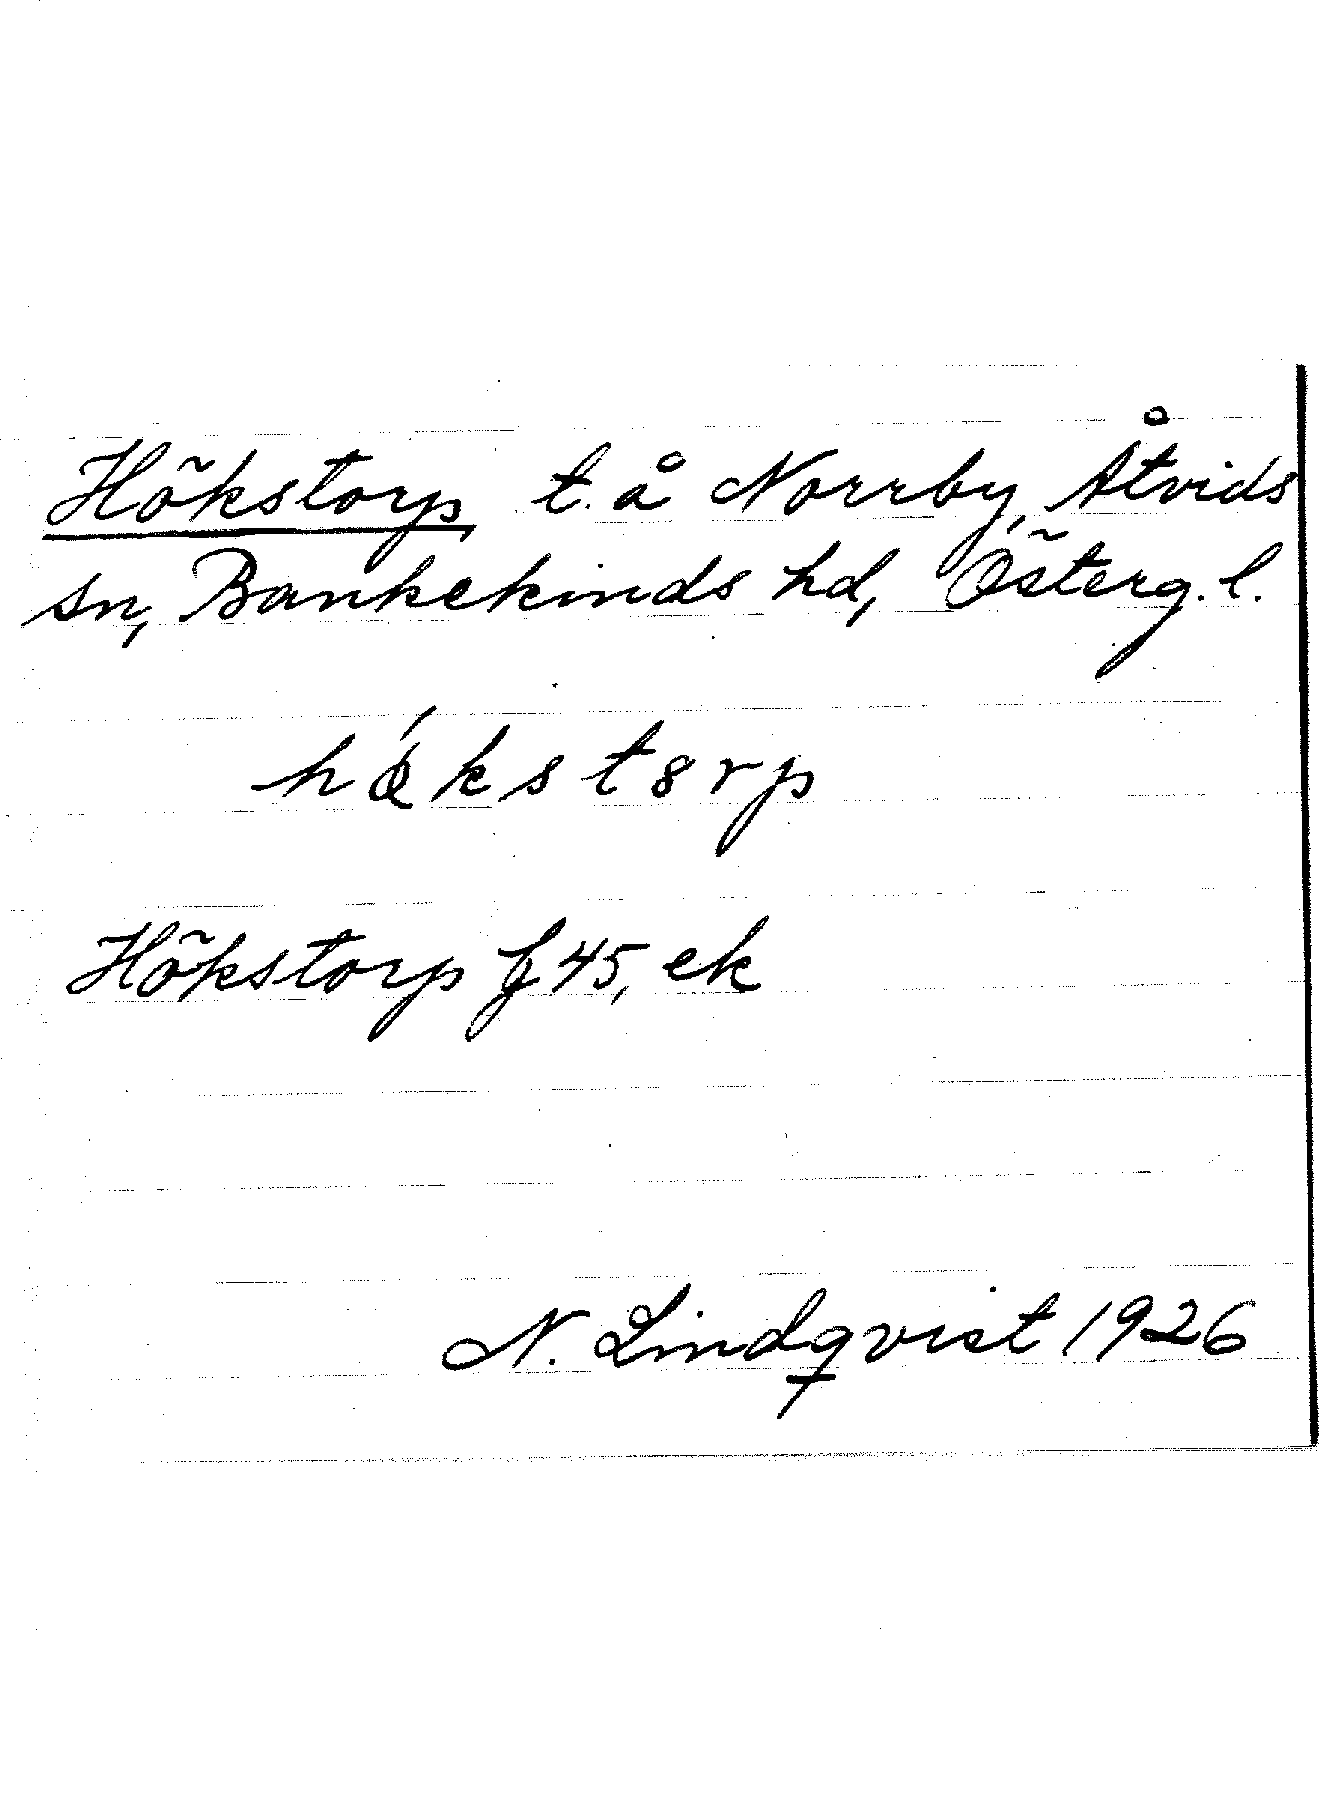 Hökstorp t. å Norrby, Åtvids
sn, Bankekinds hd, Österg. l.
hǿkstɜrp
Hökstorp f 45, ek
N. Lindqvist 1926